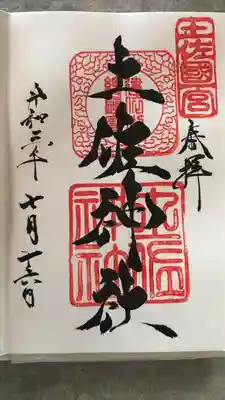 土佐國一宮
奉拝
土佐神社
土佐神社
令和二年
七月